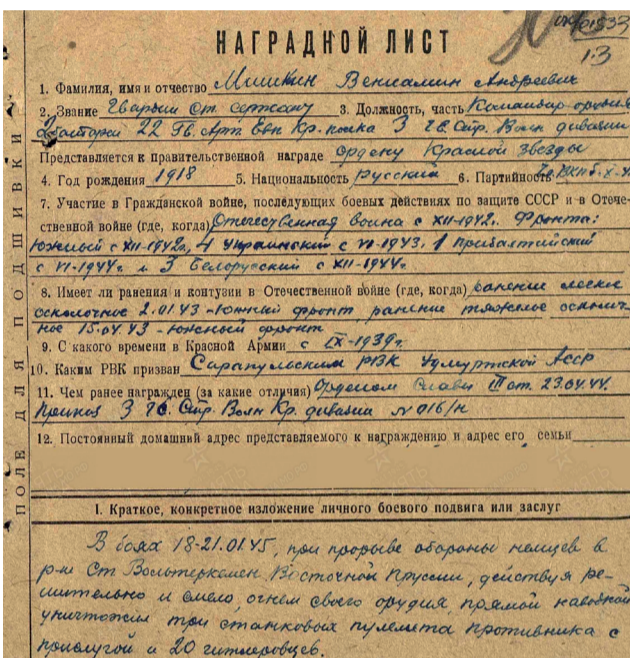 НАГРАДНОЙ ЛИСТ
1. Фамилия, имя и отчество Мишкин Вениамин Андреевич
2. Звание Гвардии ст. сержант 3. Должность, часть Командир орудия
2 батареи 22 Гв. Арт. Евп. Кр. полка 3 Гв. Стр. Волн. дивизии
Представляется к правительственной награде ордену Красной Звезды
4. Год рождения 1918 5. Национальность русский 6. Партийность
7. Участие в Гражданской войне, последующих боевых действиях по защите СССР и в Отече-
ственной войне (где, когда) Отечественная война с XII-1942г. Фронта:
Южный с XII-1942г, 4 Украинский с VI-1943, 1 Прибалтийский
с VI-1944г и 3 Белорусский с XII-1944г
8. Имеет ли ранения и контузии в Отечественной войне (где, когда) ранение легкое
осколочное 2.01.43 - Южный фронт, ранение тяжелое осколоч-
ное 15.04.43 - Южный фронт
9. С какого времени в Красной Армии с IX-1939г.
10. Каким РВК призван Сарапульским РВК Удмуртской АССР
11. Чем ранее награжден (за какие отличия) Орденом Славы III ст. 23.04.44.
Приказ 3 Гв. Стр. Волн. Кр. дивизии № 016/н
12. Постоянный домашний адрес представляемого к награждению и адрес его семьи
I. Краткое, конкретное изложение личного боевого подвига или заслуг
В боях 18-21.01.45, при прорыве обороны немцев в
р-не ст. Вольтеркемен Восточной Пруссии, действуя ре-
шительно и смело, огнем своего орудия, прямой наводкой
уничтожил три станковых пулемета противника с
прислугой и 20 гитлеровцев.
ПОЛЕ ДЛЯ ПОДШИВКИ